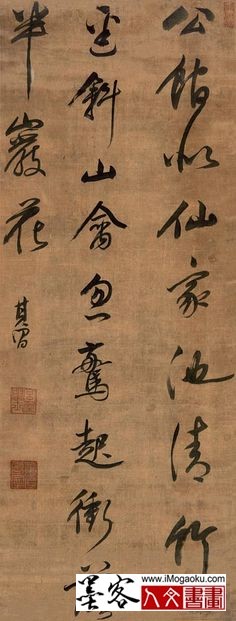 公館似仙家池清竹
逕斜山禽忽驚起衝落
半巖花
其昌
墨客
www.iMogaoku.com
人文書畫